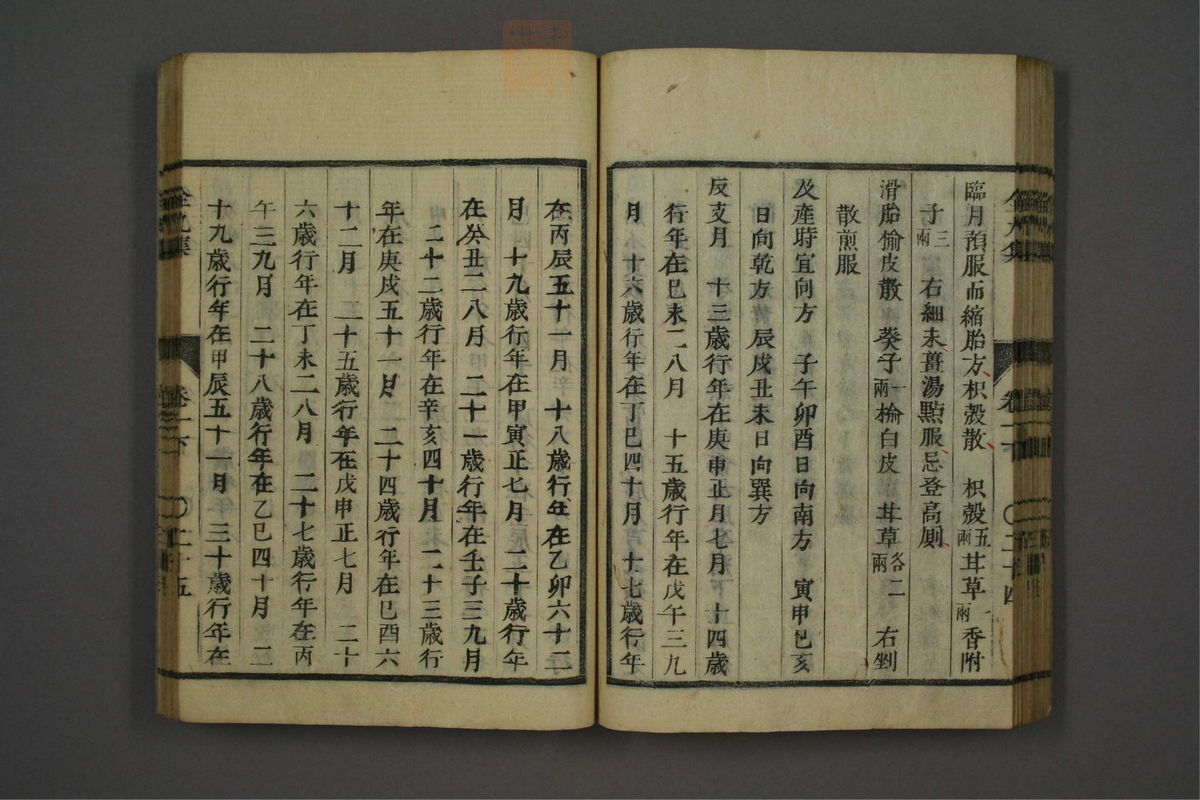 臨月預服而縮胎方枳殼散　枳殼五兩甘草一兩香附
子三兩　右細末薑湯點服忌登高厠
滑胎榆皮散　葵子一兩榆白皮　甘草各二兩　右剉
散煎服
及產時宜向方　子午卯酉日向南方　寅申巳亥
日向乾方　辰戌丑未日向巽方
反支月　十三歲行年在庚申正月七月　十四歲
行年在巳未二八月　十五歲行年在戊午三九
月　十六歲行年在丁巳四十月　十七歲行年
在丙辰五十一月　十八歲行年在乙卯六十二
月　十九歲行年在甲寅正七月　二十歲行年
在癸丑二八月　二十一歲行年在壬子三九月
二十二歲行年在辛亥四十月　二十三歲行
年在庚戌五十一月　二十四歲行年在巳酉六
十二月　二十五歲行年在戊申正七月　二十
六歲行年在丁未二八月　二十七歲行年在丙
午三九月　二十八歲行年在乙巳四十月　二
十九歲行年在甲辰五十一月　三十歲行年在
全九集　卷一下　〇二十五